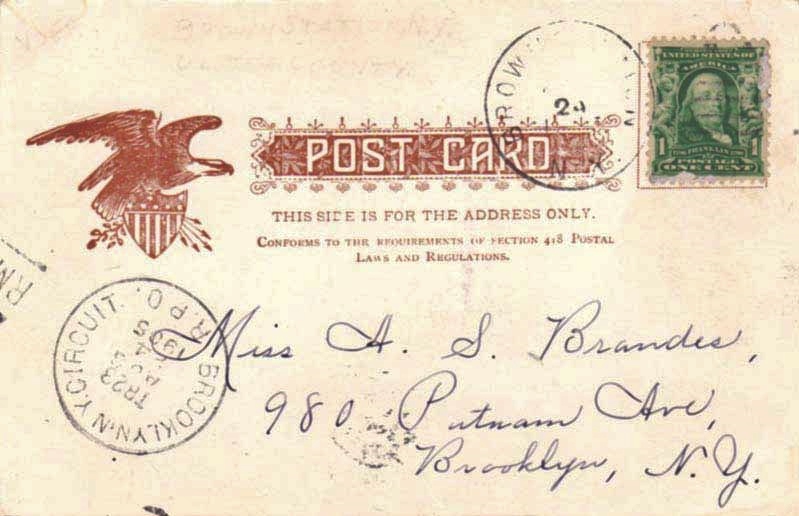 UNITED STATES OF
AMERICA
1 1
FRANKLIN
POSTAGE
ONE CENT
BROWN
24
N.Y.
POST CARD
THIS SIDE IS FOR THE ADDRESS ONLY.
CONFORMS TO THE REQUIREMENTS OF SECTION 418 POSTAL
LAWS AND REGULATIONS.
RM
BROOKLYN.N.Y.CIRCUIT. R.P.O.
TR23
Miss A. S. Brandes,
980 Putnam Ave,
Brooklyn, N.Y.